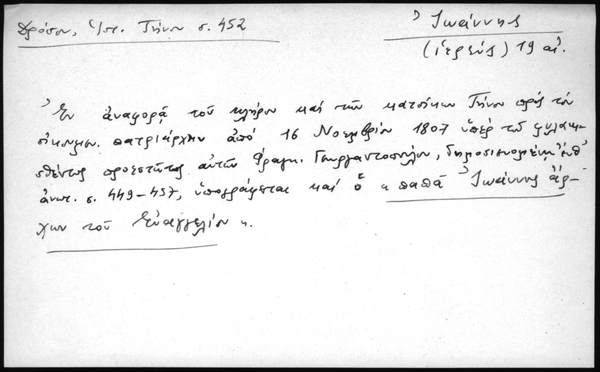 Δρόσου, Ἱστ. Τήνου σ. 452
Ἰωάννης
(ἱερεύς) 19 αἰ.
Ἐν ἀναφορᾷ τοῦ κλήρου καί τῶν κατοίκων Τήνου πρός τόν
οἰκουμεν. πατριάρχην ἀπό 16 Νοεμβρίου 1807 ὑπέρ τοῦ φυλακι-
σθέντος προεστῶτος αὐτῶν Φραγκ. Γεωργαντοπούλου, δημοσιευομένῃ ἐνθ'
ἀνωτ. σ. 449-457, ὑπογράφεται καί ὁ "παπᾶ Ἰωάννης ἄρ-
χων τοῦ Εὐαγγελίου".